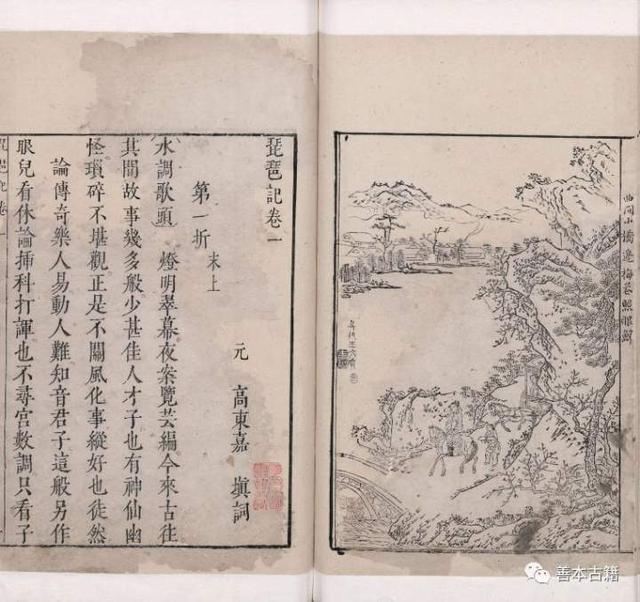 橋邊梅蕊照眼鮮
琵琶記卷一
元 高東嘉 塡詞
第一折 末上
水調歌頭 燈明翠幕夜案覽芸編今來古往
其間故事幾多般少甚佳人才子也有神仙幽
怪瑣碎不堪觀正是不關風化事縱好也徒然
論傳奇樂人易動人難知音君子這般另作
眼兒看休論揷科打諢也不尋宮數調只看子
善本古籍